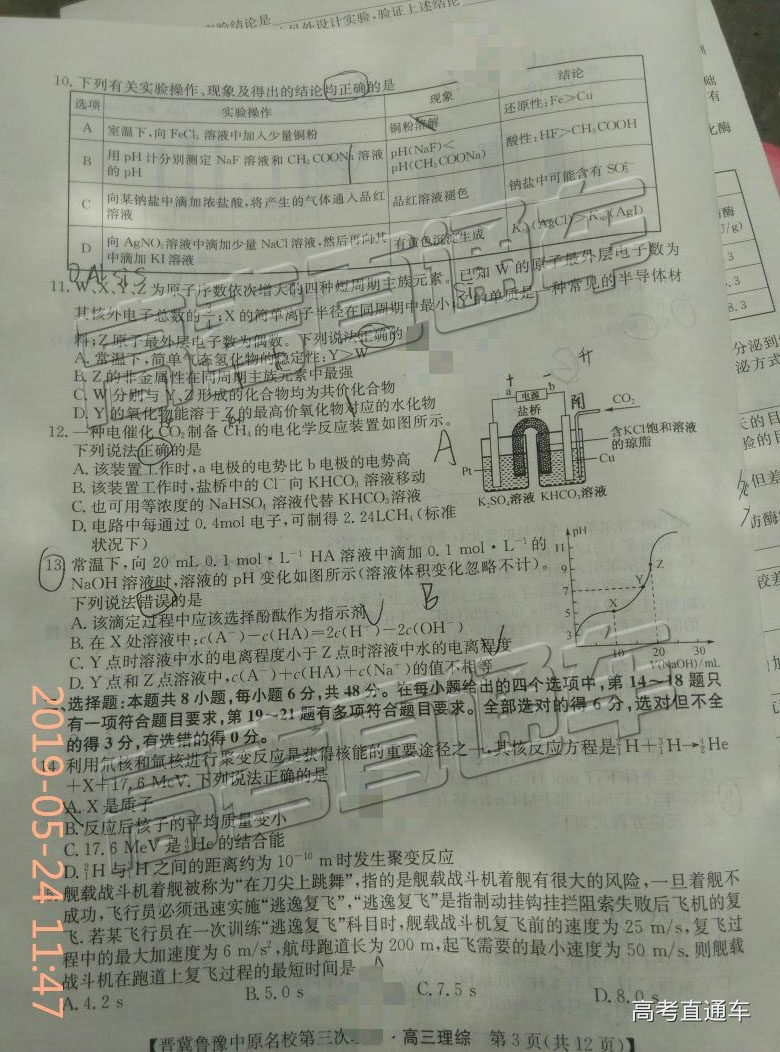 实验结论是
另外设计实验,验证上述结论
10. 下列有关实验操作、现象及得出的结论均正确的是
选项 实验操作 现象 结论
A 室温下,向 FeCl₃ 溶液中加入少量铜粉 铜粉溶解 还原性:Fe>Cu
B 用 pH 计分别测定 NaF 溶液和 CH₃COONa 溶液的 pH pH(NaF)<pH(CH₃COONa) 酸性:HF>CH₃COOH
C 向某钠盐中滴加浓盐酸,将产生的气体通入品红溶液 品红溶液褪色 钠盐中可能含有 SO₃²⁻
D 向 AgNO₃ 溶液中滴加少量 NaCl 溶液,然后再向其中滴加 KI 溶液 有黄色沉淀生成 Ksp(AgCl)>Ksp(AgI)
11. W、X、Y、Z 为原子序数依次增大的四种短周期主族元素。已知 W 的原子最外层电子数为
其核外电子总数的;X 的简单离子半径在同周期中最小;Y 的单质是一种常见的半导体材
料;Z 原子最外层电子数为偶数。下列说法正确的
A. 常温下,简单气态氢化物的稳定性:Y>W
B. Z 的非金属性在同周期主族元素中最强
C. W 分别与 Y、Z 形成的化合物均为共价化合物
D. Y 的氧化物能溶于 Z 的最高价氧化物对应的水化物
12. 一种电催化 CO₂ 制备 CH₄ 的电化学反应装置如图所示。
下列说法正确的是
A
A. 该装置工作时,a 电极的电势比 b 电极的电势高
B. 该装置工作时,盐桥中的 Cl⁻ 向 KHCO₃ 溶液移动
C. 也可用等浓度的 NaHSO₄ 溶液代替 KHCO₃ 溶液
D. 电路中每通过 0.4mol 电子,可制得 2.24LCH₄(标准
状况下)
a 电源 b
盐桥
CO₂
含KCl饱和溶液
的琼脂
Pt
Cu
K₂SO₄溶液 KHCO₃溶液
13. 常温下,向 20 mL 0.1 mol·L⁻¹ HA 溶液中滴加 0.1 mol·L⁻¹ 的
NaOH 溶液时,溶液的 pH 变化如图所示(溶液体积变化忽略不计)。
下列说法错误的是
B
A. 该滴定过程中应该选择酚酞作为指示剂
B. 在 X 处溶液中:c(A⁻)-c(HA)=2c(H⁺)-2c(OH⁻)
C. Y 点时溶液中水的电离程度小于 Z 点时溶液中水的电离程度
D. Y 点和 Z 点溶液中,c(A⁻)+c(HA)+c(Na⁺)的值不相等
pH
11
9
7
5
3
X
Y
Z
10 20 30
V(NaOH)/mL
选择题:本题共 8 小题,每小题 6 分,共 48 分。在每小题给出的四个选项中,第 14~18 题只
有一项符合题目要求,第 19~21 题有多项符合题目要求。全部选对的得 6 分,选对但不全
的得 3 分,有选错的得 0 分。
14. 利用氘核和氚核进行聚变反应是获得核能的重要途径之一,其核反应方程是²₁H+³₁H→⁴₂He
+X+17.6 MeV. 下列说法正确的是
A. X 是质子
B. 反应后核子的平均质量变小
C. 17.6 MeV 是⁴₂He 的结合能
D. ²₁H 与³₁H 之间的距离约为 10⁻¹⁰ m 时发生聚变反应
舰载战斗机着舰被称为“在刀尖上跳舞”,指的是舰载战斗机着舰有很大的风险,一旦着舰不
成功,飞行员必须迅速实施“逃逸复飞”,“逃逸复飞”是指制动挂钩挂拦阻索失败后飞机的复
飞. 若某飞行员在一次训练“逃逸复飞”科目时,舰载战斗机复飞前的速度为 25 m/s,复飞过
程中的最大加速度为 6 m/s²,航母跑道长为 200 m,起飞需要的最小速度为 50 m/s. 则舰载
战斗机在跑道上复飞过程的最短时间是
A. 4.2 s B. 5.0 s C. 7.5 s D. 8.0 s
【晋冀鲁豫中原名校第三次 · 高三理综 第 3 页(共 12 页)】
高考直通车
高考直通车
高考直通车
2019-05-24 11:47